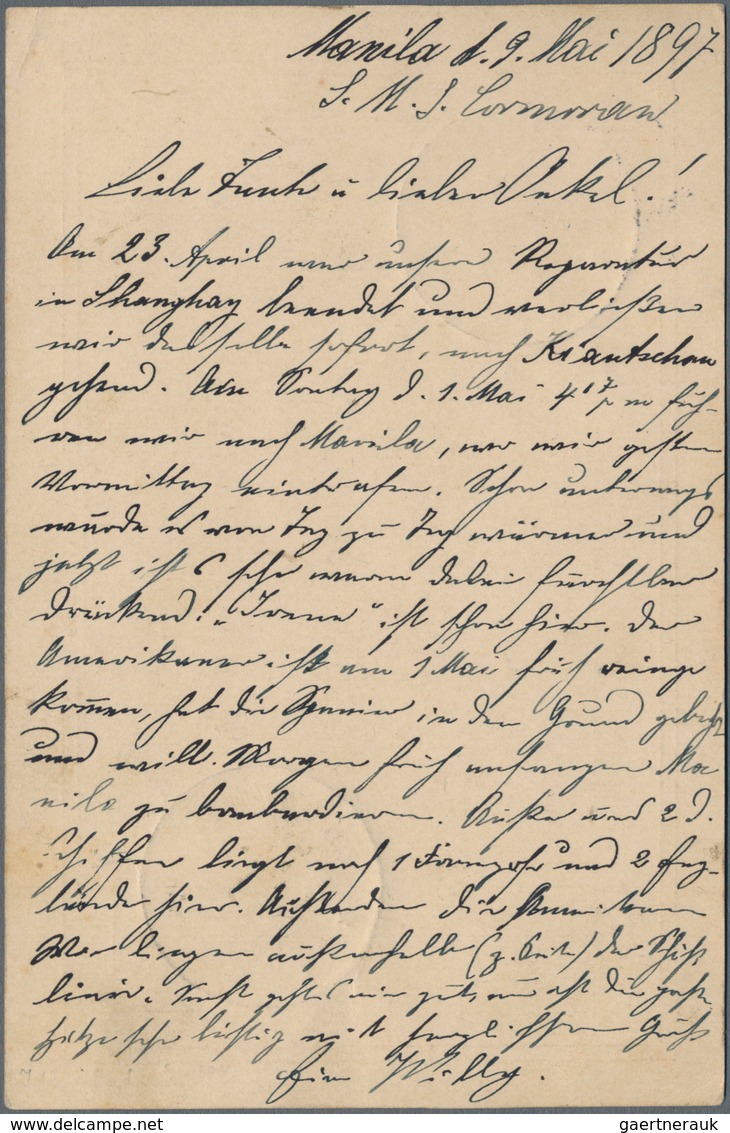 Manila d. 9. Mai 1897
S. M. S. Cormoran
Liebe Tante u lieber Onkel!
Am 23. April war unsere Reparatur
in Shanghay beendet und verließen
wir dasselbe sofort, nach Kiautschau
gehend. Am Sontag d. 1. Mai 4 fuh-
ren wir nach Manila, wo wir gestern
Vormittag eintrafen. Schon unterwegs
wurde es von Tag zu Tag wärmer und
jetzt ist es sehr warm dabei furchtbar
drückend. "Irene" ist schon hier. Der
Amerikaner ist am 1 Mai früh reinge
kommen, hat die Spanier in den Grund gebohrt
und will Morgen früh anfangen Ma
nila zu bombardieren. Außer uns 2 d.
Schiffen liegt noch 1 Franzose und 2 Eng-
länder hier. Außerdem die Amerikaner
Wir liegen außerhalb (z. Seite) der Schuß
linie. Sonst geht es mir gut, nur ist die große
Hitze sehr lästig mit herzlichstem Gruß
Euer Willy.
gaertnerauk